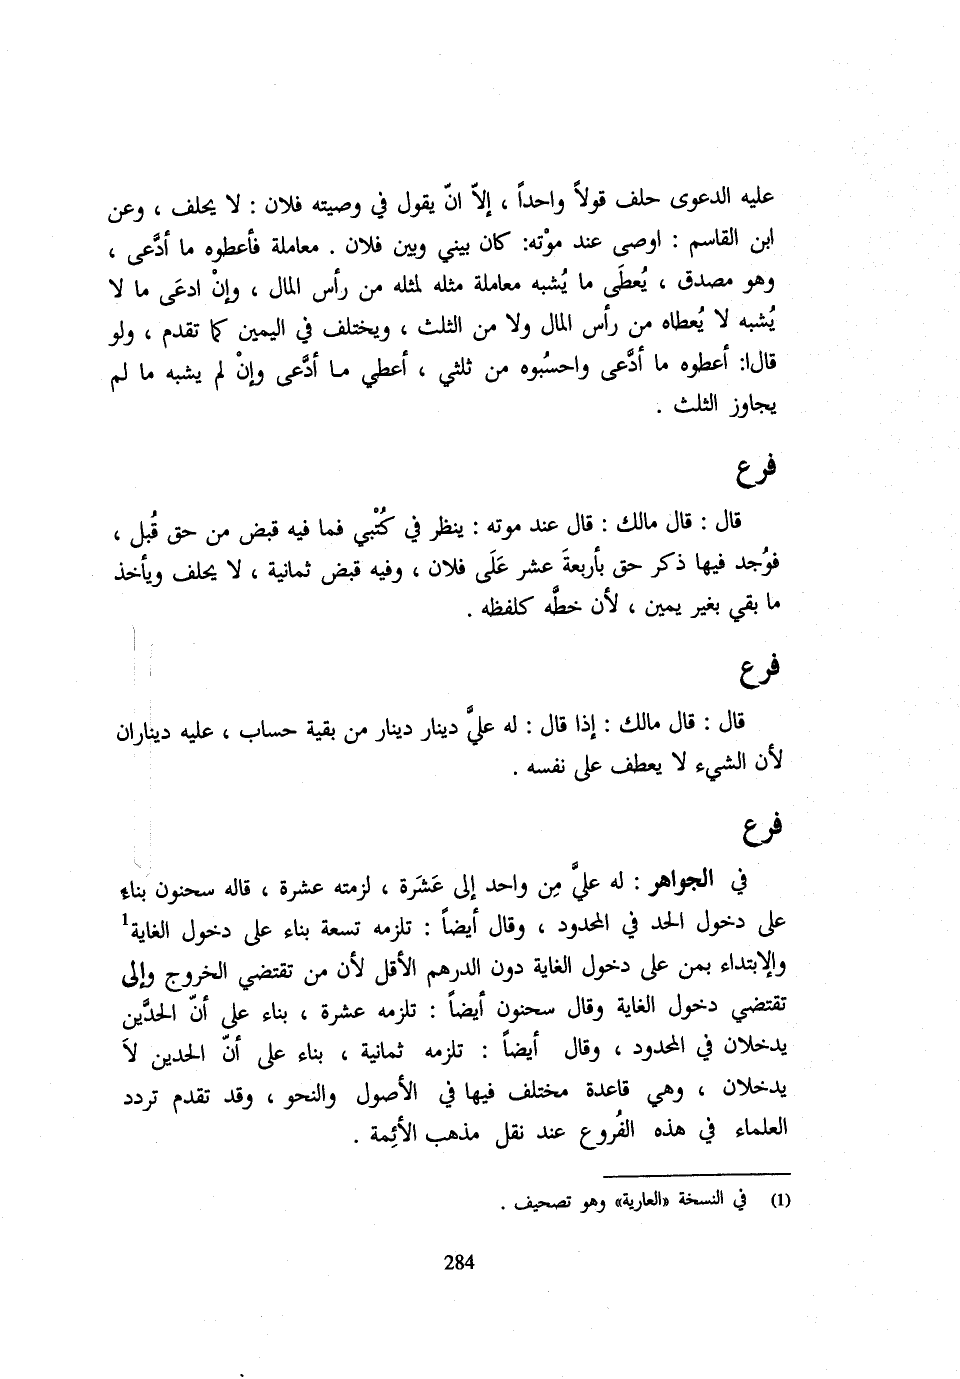 عليه الدعوى حلف قولاً واحداً ، إلاّ انّ يقول في وصيته فلان : لا يحلف ، وعن
ابن القاسم : اوصى عند موْته: كان بيني وبين فلان . معاملة فأعطوه ما أدَّعى ،
وهو مصدق ، يُعطَى ما يُشبه معاملة مثله لمثله من رأس المال ، وإنْ ادعَى ما لا
يُشبه لا يُعطاه من رأس المال ولا من الثلث ، ويختلف في اليمين كما تقدم ، ولو
قالا: أعطوه ما أدَّعى واحسُبوه من ثلثي ، أعطي ما أدَّعى وإنْ لم يشبه ما لم
يجاوز الثلث .
فرع
قال : قال مالك : قال عند موته : ينظر في كُتْبي فما فيه قبض من حق قُبل ،
فوُجد فيها ذكر حق بأربعةَ عشر عَلَى فلان ، وفيه قبض ثمانية ، لا يحلف ويأخذ
ما بقي بغير يمين ، لأن خطَّه كلفظه .
فرع
قال : قال مالك : إذا قال : له عليَّ دينار دينار من بقية حساب ، عليه ديناران
لأن الشيء لا يعطف على نفسه .
فرع
في الجواهر : له عليَّ مِن واحد إلى عَشَرة ، لزمته عشرة ، قاله سحنون بناءً
على دخول الحد في المحدود ، وقال أيضاً : تلزمه تسعة بناء على دخول الغاية1
والإبتداء بمن على دخول الغاية دون الدرهم الأقل لأن من تقتضي الخروج وإلى
تقتضي دخول الغاية وقال سحنون أيضاً : تلزمه عشرة ، بناء على أنّ الحدَّين
يدخلان في المحدود ، وقال أيضاً : تلزمه ثمانية ، بناء على أنّ الحدين لاَ
يدخلان ، وهي قاعدة مختلف فيها في الأصول والنحو ، وقد تقدم تردد
العلماء في هذه الفُروع عند نقل مذهب الأئِمة .
(1) في النسخة «العارية» وهو تصحيف .
284